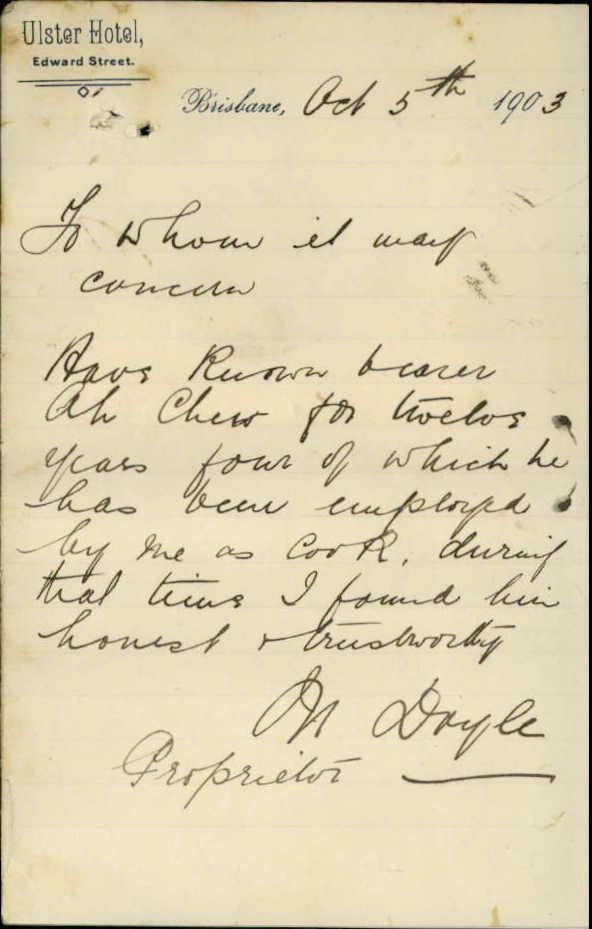 Ulster Hotel,
Edward Street.
Brisbane, Oct 5th 1903
To whom it may
concern
Have Known bearer
Ah Chew for twelve
years four of which he
has been employed
by me as Cook, during
that time I found him
honest & trustworthy
M Doyle
Proprietor